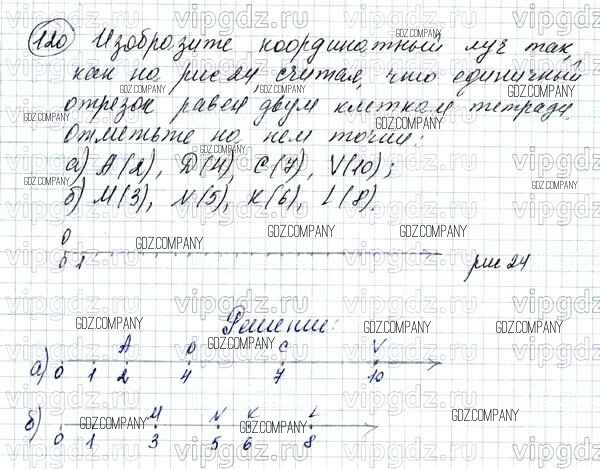 120 Изобразите координатный луч так,
как на рис 24 считая, что единичный
отрезок равен двум клеткам тетради.
Отметьте на нем точки:
а) A(2), D(4), C(7), V(10);
б) M(3), N(5), K(6), L(8).
0
0 1
рис 24
Решение:
A D C V
а) 0 1 2 4 7 10
M N K L
б) 0 1 3 5 6 8
GDZ.COMPANY
vipgdz.ru